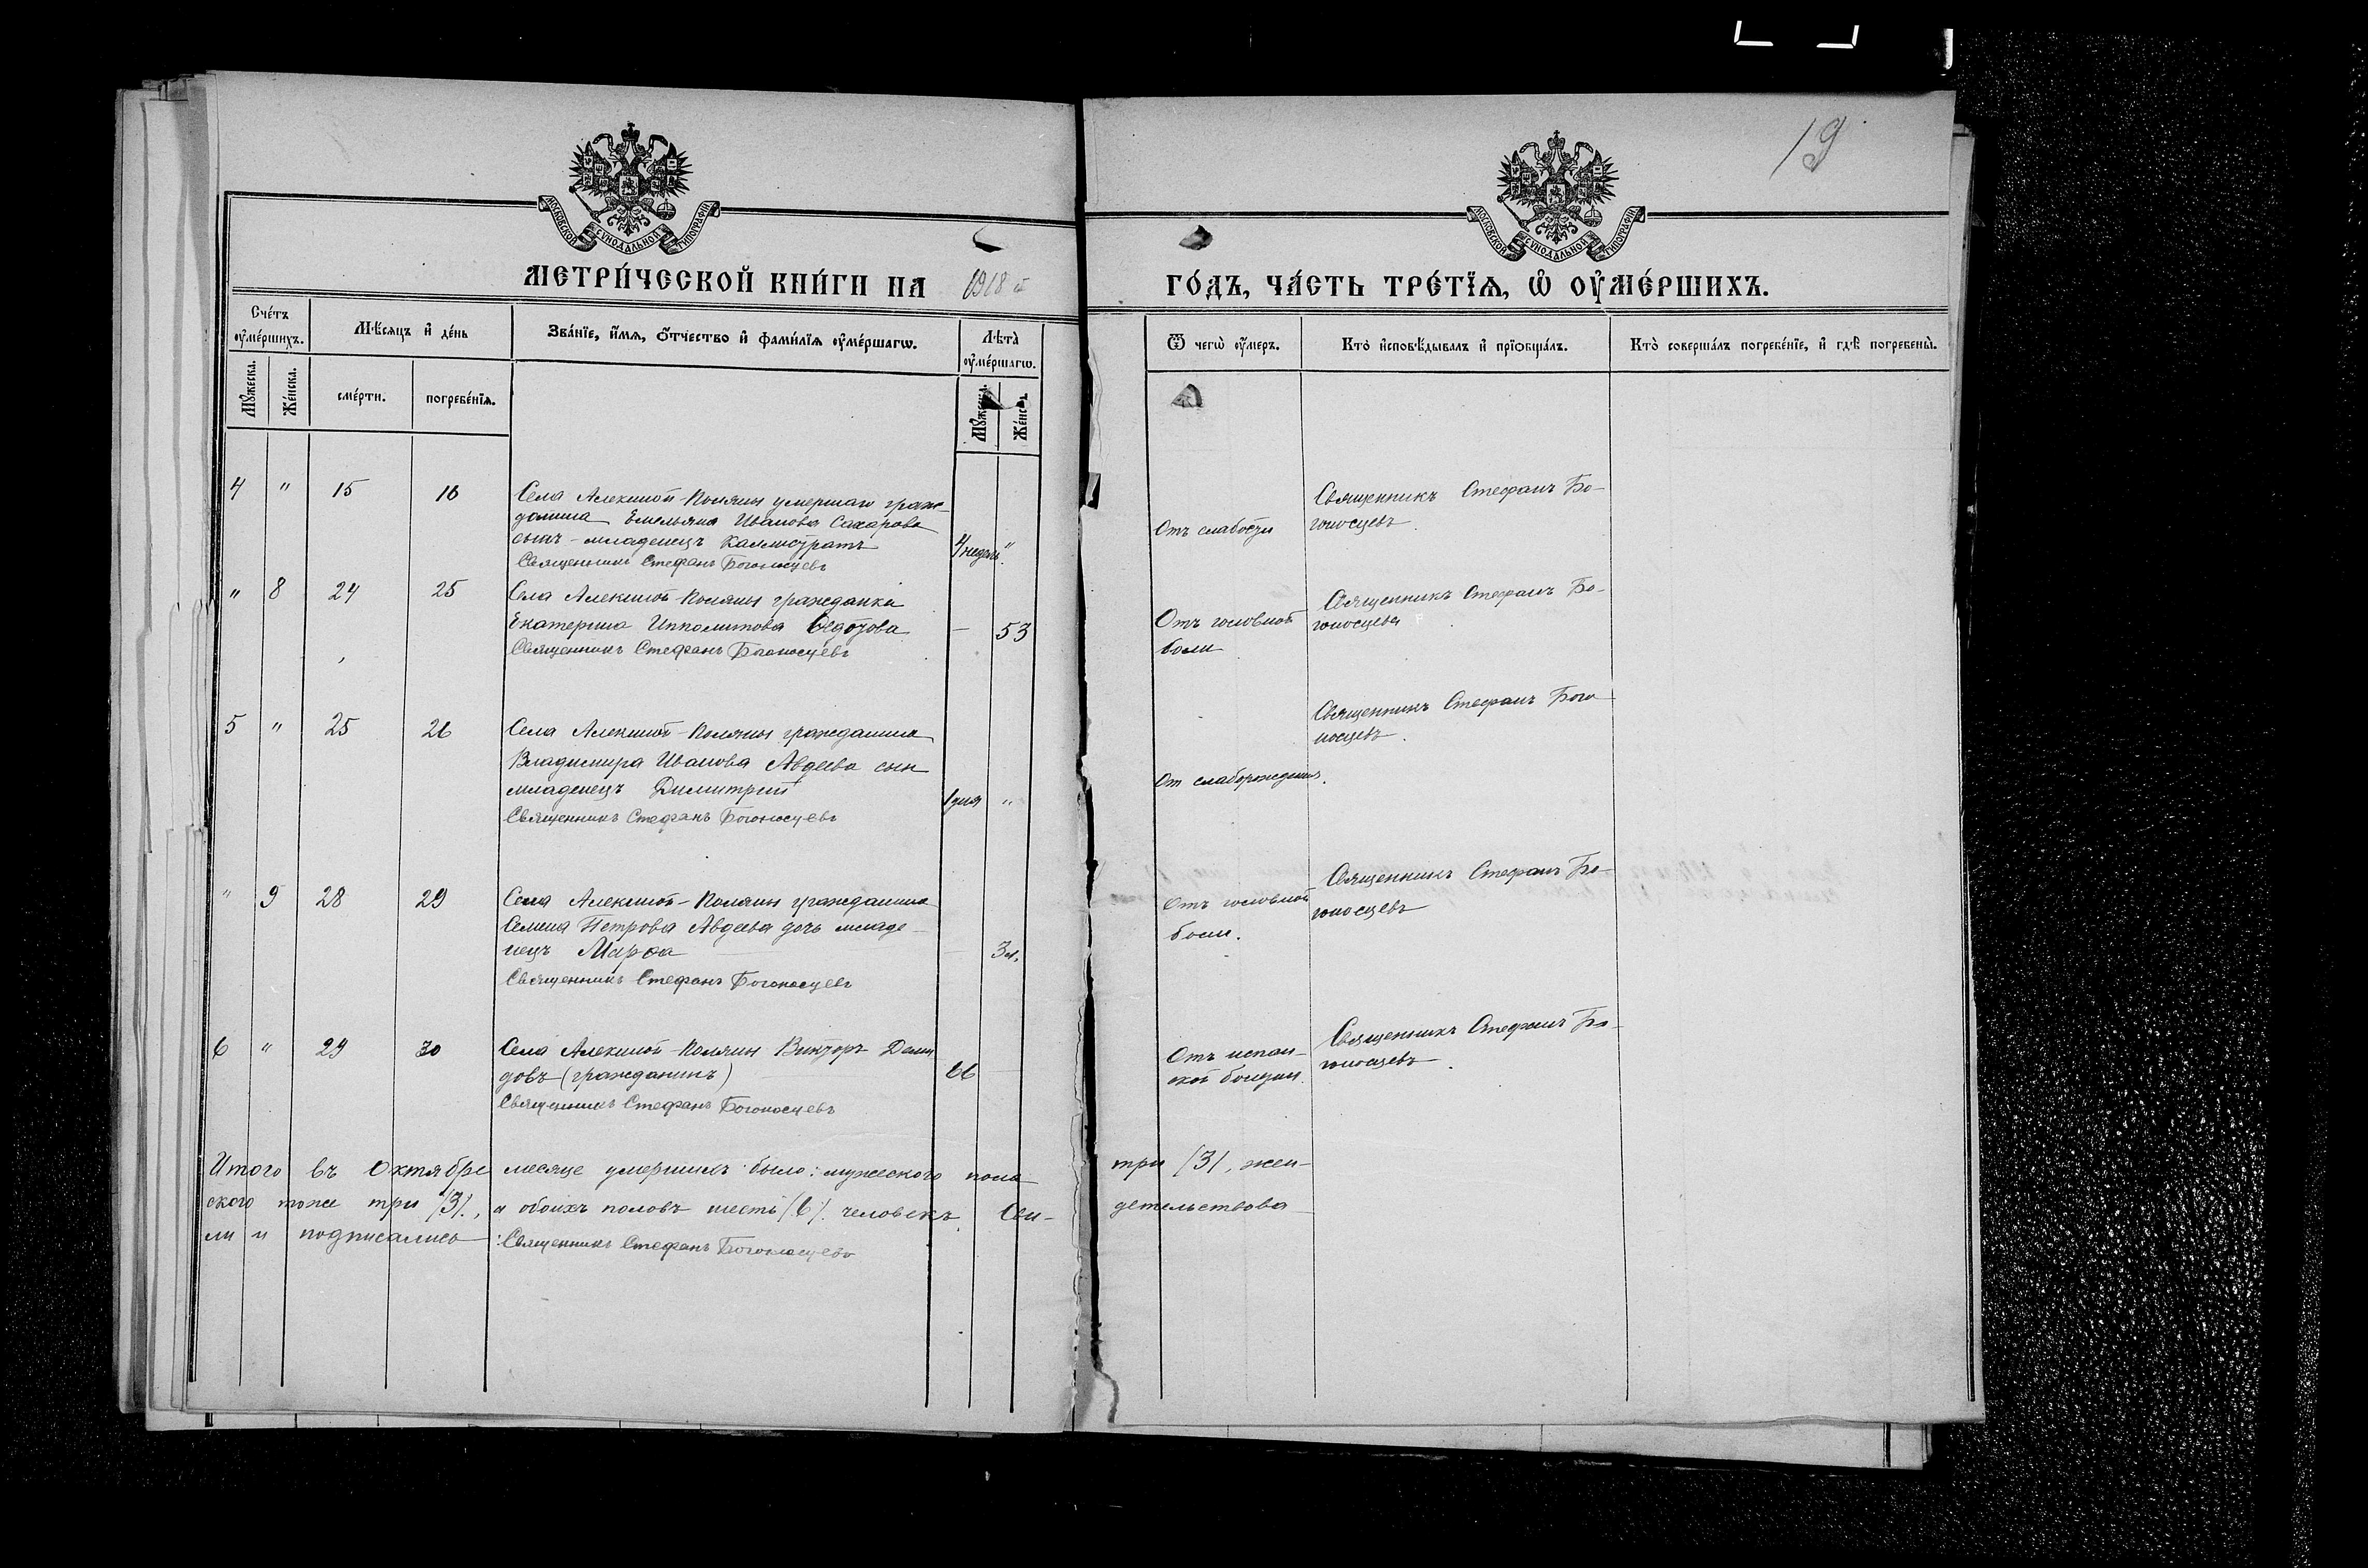 19
МОСКОВСКОЙ СѴНОДАЛЬНОЙ ТИПОГРАФІИ
МОСКОВСКОЙ СѴНОДАЛЬНОЙ ТИПОГРАФІИ
МЕТРИ́ЧЕСКОЙ КНИ́ГИ НА 1918 ГО́ДЪ, ЧА́СТЬ ТРЕ́ТЇѦ, Ѡ҆ ОУ҆МЕ́РШИХЪ.
Сче́тъ оу҆ме́ршихъ.
Мꙋ́жеска.
Же́нска.
Мѣ́сѧцъ и҆ де́нь
сме́рти.
погребе́нїѧ.
Зва́нїе, и҆́мѧ, ѻ҆́тчество и҆ фами́лїѧ оу҆ме́ршагѡ.
Лѣ́та оу҆ме́ршагѡ.
Мꙋ́жеска.
Же́нска.
Ѿ чегѡ̀ оу҆́меръ.
Кто̀ и҆сповѣ́дывалъ и҆ прїѻбща́лъ.
Кто̀ соверша́лъ погребе́нїе, и҆ гдѣ̀ погребены̀.
4 " 15 16
Села Алекиной-Поляны умершаго граж-
данина Емельяна Иванова Сахарова
сынъ - младенецъ Каллистратъ
Священникъ Стефанъ Богоносцевъ
4 недѣль "
Отъ слабости
Священникъ Стефанъ Бо-
гоносцевъ.
" 8 24 25
Села Алекиной-Поляны гражданка
Екатерина Ипполитова Федотова
Священникъ Стефанъ Богоносцевъ
— 53
Отъ головной
боли
Священникъ Стефанъ Бо-
гоносцевъ
5 " 25 26
Села Алекиной-Поляны гражданина
Владимира Иванова Авдеева сын
младенецъ Димитрий
Священникъ Стефанъ Богоносцевъ
1 дня "
От слаборождения.
Священникъ Стефанъ Бого-
носцевъ.
" 9 28 29
Села Алекиной-Поляны гражданина
Семена Петрова Авдеева дочь младе-
нецъ Марфа
Священникъ Стефанъ Богоносцевъ
— 3 м.
Отъ головной
боли.
Священникъ Стефанъ Бо-
гоносцевъ
6 " 29 30
Села Алекиной-Поляны Викторъ Деми-
довъ (гражданинъ)
Священникъ Стефанъ Богоносцевъ
66
Отъ испан-
ской болезни.
Священникъ Стефанъ Бо-
гоносцевъ.
Итого въ Октябре месяце умершихъ было: мужеского пола три /3/, жен-
ского тоже три /3/., а обоихъ половъ шесть /6/. человекъ. Сви- детельствова
ли и подписались: Священникъ Стефанъ Богоносцевъ